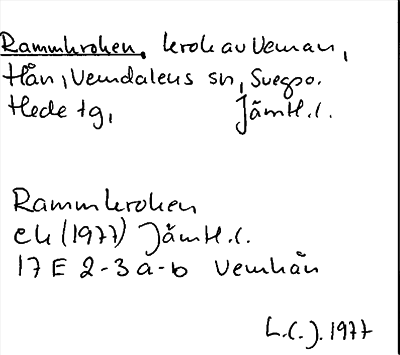 Rammkroken, krok av Veman,
Hån, Vemdalens sn, Svegs po.
Hede tg, Jämtl. l.
Rammkroken
ek (1977) Jämtl. l.
17 E 2-3 a-b Vemhån
L.C.J. 1977